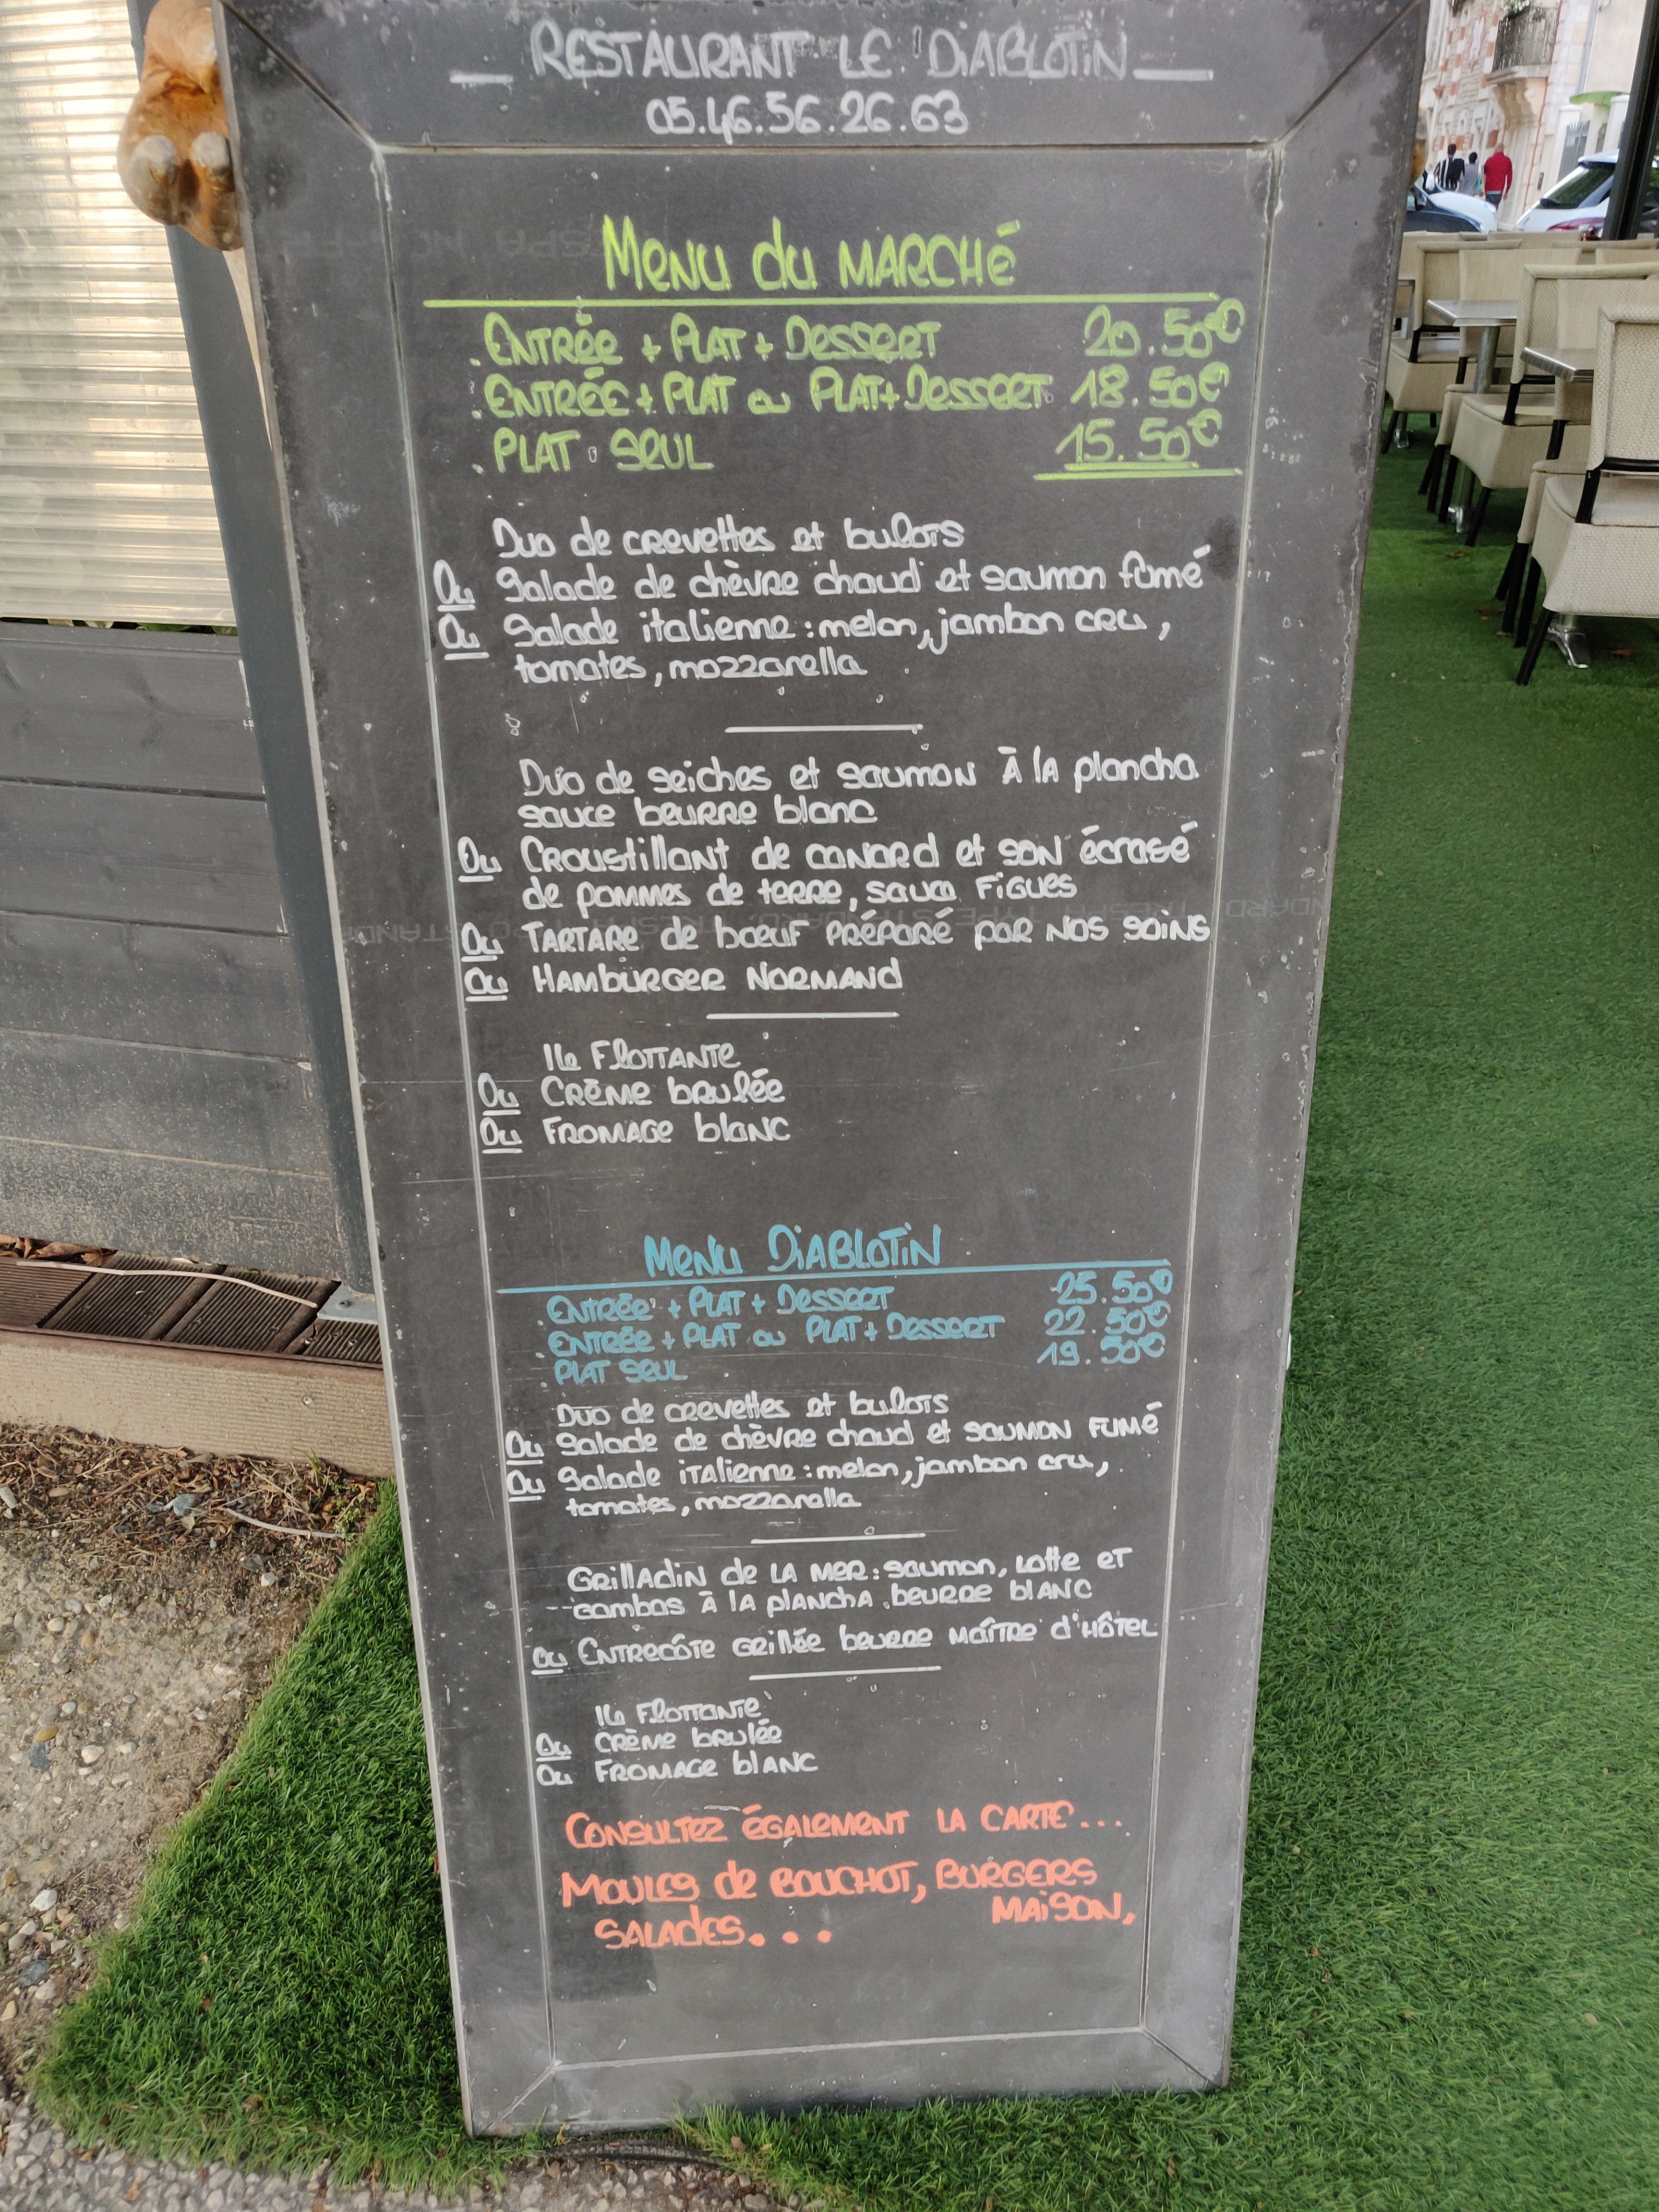 RESTAURANT LE DIABLOTIN
05.46.56.26.63
Menu du MARCHé
. ENTRÉE + PLAT + Dessert 20.50€
. ENTRÉE + PLAT ou PLAT + Dessert 18.50€
. PLAT SEUL 15.50€
Duo de crevettes et bulots
Ou Salade de chèvre chaud et saumon fumé
Ou Salade italienne : melon, jambon cru,
tomates, mozzarella
Duo de seiches et saumon À la plancha
sauce beurre blanc
Ou Croustillant de canard et son écrasé
de pommes de terre, sauce Figues
Ou Tartare de bœuf préparé par nos soins
Ou Hamburger Normand
Ile Flottante
Ou Crème brulée
Ou Fromage blanc
Menu DiABLOTiN
. ENTRÉE + PLAT + Dessert 25.50€
. ENTRÉE + PLAT ou PLAT + Dessert 22.50€
. PLAT SEUL 19.50€
Duo de crevettes et bulots
Ou Salade de chèvre chaud et saumon fumé
Ou Salade italienne : melon, jambon cru,
tomates, mozzarella
Grilladin de la mer : saumon, lotte et
gambas À la plancha, beurre blanc
Ou Entrecôte grillée beurre maître d'hôtel
Ile Flottante
Ou Crème brulée
Ou Fromage blanc
Consultez également la carte...
Moules de bouchot, burgers
maison,
salades...